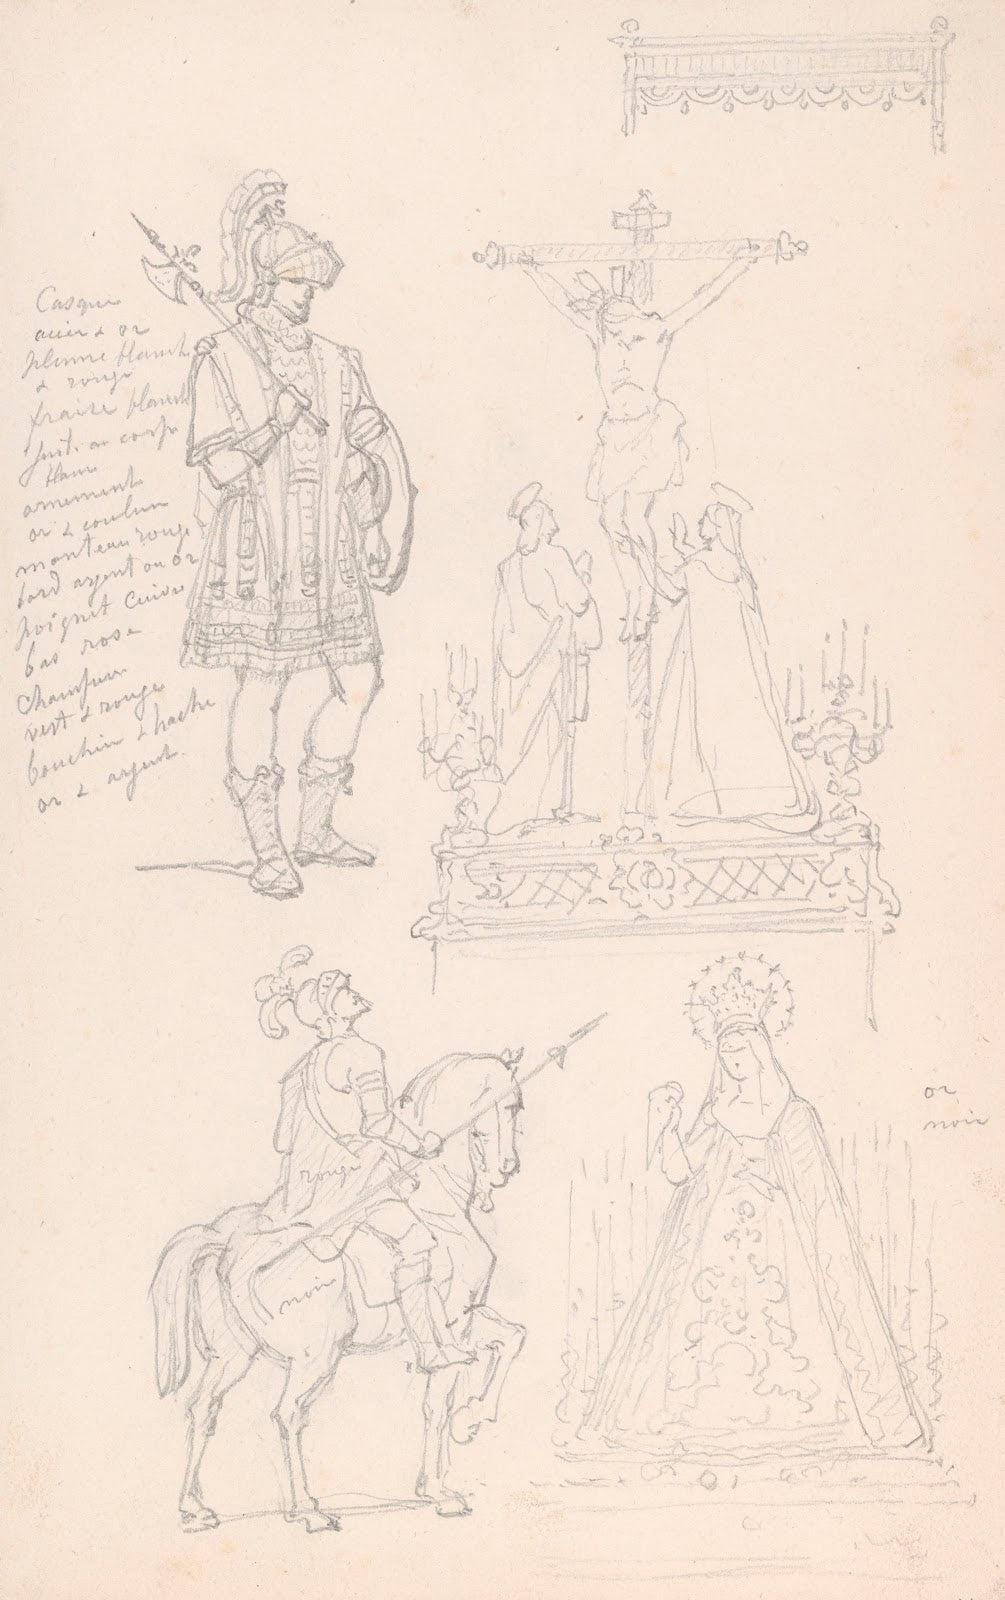 Casque
acier & or
plume blanch
& rouge
fraise blanch
just. au corps
blanc
ornement
or & couleur
manteau rouge
bord argent ou or
poignet cuivre
bas rose
vert & rouge
& hache
or & argent.
rouge
noir
or
noir